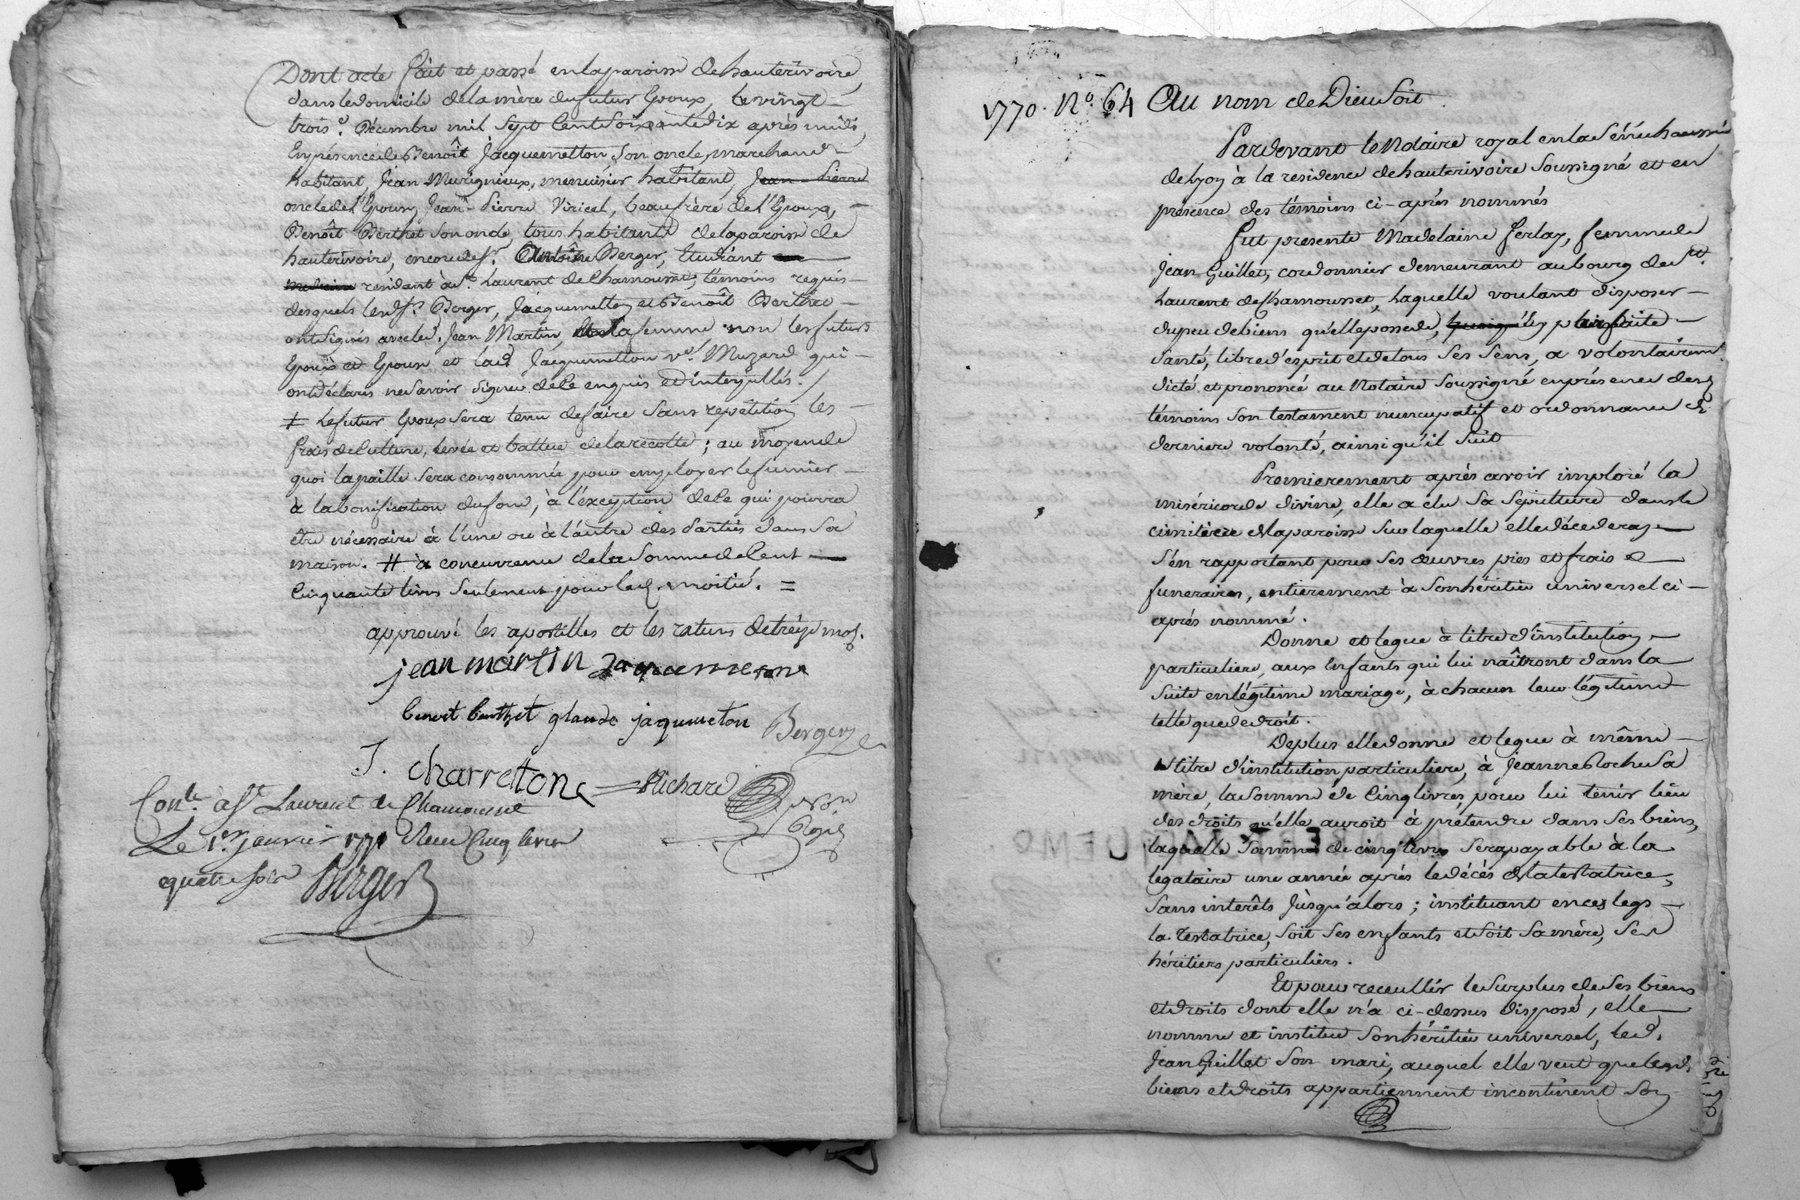 Dont acte fait et passé en la paroisse de hauterivoire,
dans le domicile de la mère du futur Epoux, le vingt
trois e. Décembre mil Sept Cent Soixante dix après midi,
En présence de Benoît Jacquemetton Son oncle, marchand
habitant, Jean Murigneux, menuisier habitant, Jean Pierre
oncle de l'Epoux, Jean-Pierre Viricel, beaufrère de l'Epoux,
Benoît Berthet Son oncle, tous habitants de la paroisse de
hauterivoire, encore de Sr. Antoine Berger, Etudiant
residant à St. Laurent de Chamousset, témoins requis
desquels led. Sr. Berger, Jacquemetton et Benoît Berthet
ont Signés avec led. Jean Martin, et la femme non les futurs
Epoux et Epouse et lad. Jacquemetton ve. Muzard qui
ont déclarés ne Savoir Signer de ce enquis et interpellés. /
≠ Le futur Epoux Sera tenu de faire Sans repétition les
frais de culture, levée et battue de la récolte ; au moyen de
quoi la paille Sera consommée pour employer le fumier
à la bonification du fond, à l'exception de ce qui pourra
être nécessaire à l'une ou à l'autre des Parties dans Sa
maison. # à concurrence de la Somme de Cent
Cinquante livres Seulement pour lad. moitié. =
approuvé les apostilles et les ratures de treize mots.
jean martin Jaquemetton
benoit berthet glaude jaqumeton Berger
J. Charretton Richard
Conlé. à St. Laurent de Chamousset
Le 1er janvier 1771 Reçu Cinq livres
quatre sols Berger
1770. No. 64 Au nom de Dieu Soit
Pardevant le Notaire royal en la Sénéchaussée
de Lyon à la residence de hauterivoire Soussigné et en
présence des témoins ci-après nommés
Fut presente Madelaine Ferlay, femme de
Jean Guillet, cordonnier demeurant au bourg de St.
Laurent de Chamousset, Laquelle voulant disposer
du peu de biens qu'elle possede, en parfaite
Santé, libre d'esprit et de tous Ses Sens, a volontairemt.
dicté et prononcé au Notaire Soussigné en présence des
témoins Son testament nuncupatif et ordonnance de
derniere volonté, ainsi qu'il Suit
Premierement après avoir imploré la
miséricorde divine, elle a élu Sa Sépulture dans le
cimitière de la paroisse Sur laquelle elle décedera,
S'en rapportant pour Ses œuvres pies et frais
funeraires, entierement à Son héritier universel ci-
après nommé.
Donne et legue à titre d'institution
particuliere, aux Enfants qui lui naîtront dans la
Suite en légitime mariage, à chacun leur légitime
telle que de droit.
Deplus elle donne et legue à même
titre d'institution particuliere, à Jeanne Poche Sa
mère, la Somme de Cinq livres, pour lui tenir lieu
des droits qu'elle auroit à prétendre dans Ses biens,
laquelle Somme de cinq livres Sera payable à la
légataire une année après le décès de la testatrice,
Sans interêts Jusqu'alors ; instituant en ces legs
la Testatrice, Soit Ses enfants et Soit Sa mère, Ses
héritiers particuliers.
Et pour receuillir le Surplus de Ses biens
et droits dont elle n'a ci-dessus disposé, elle
nomme et institue Son héritier universel, led.
Jean Guillet Son mari, auquel elle veut que lesd.
biens et droits appartiennent incontinent Son